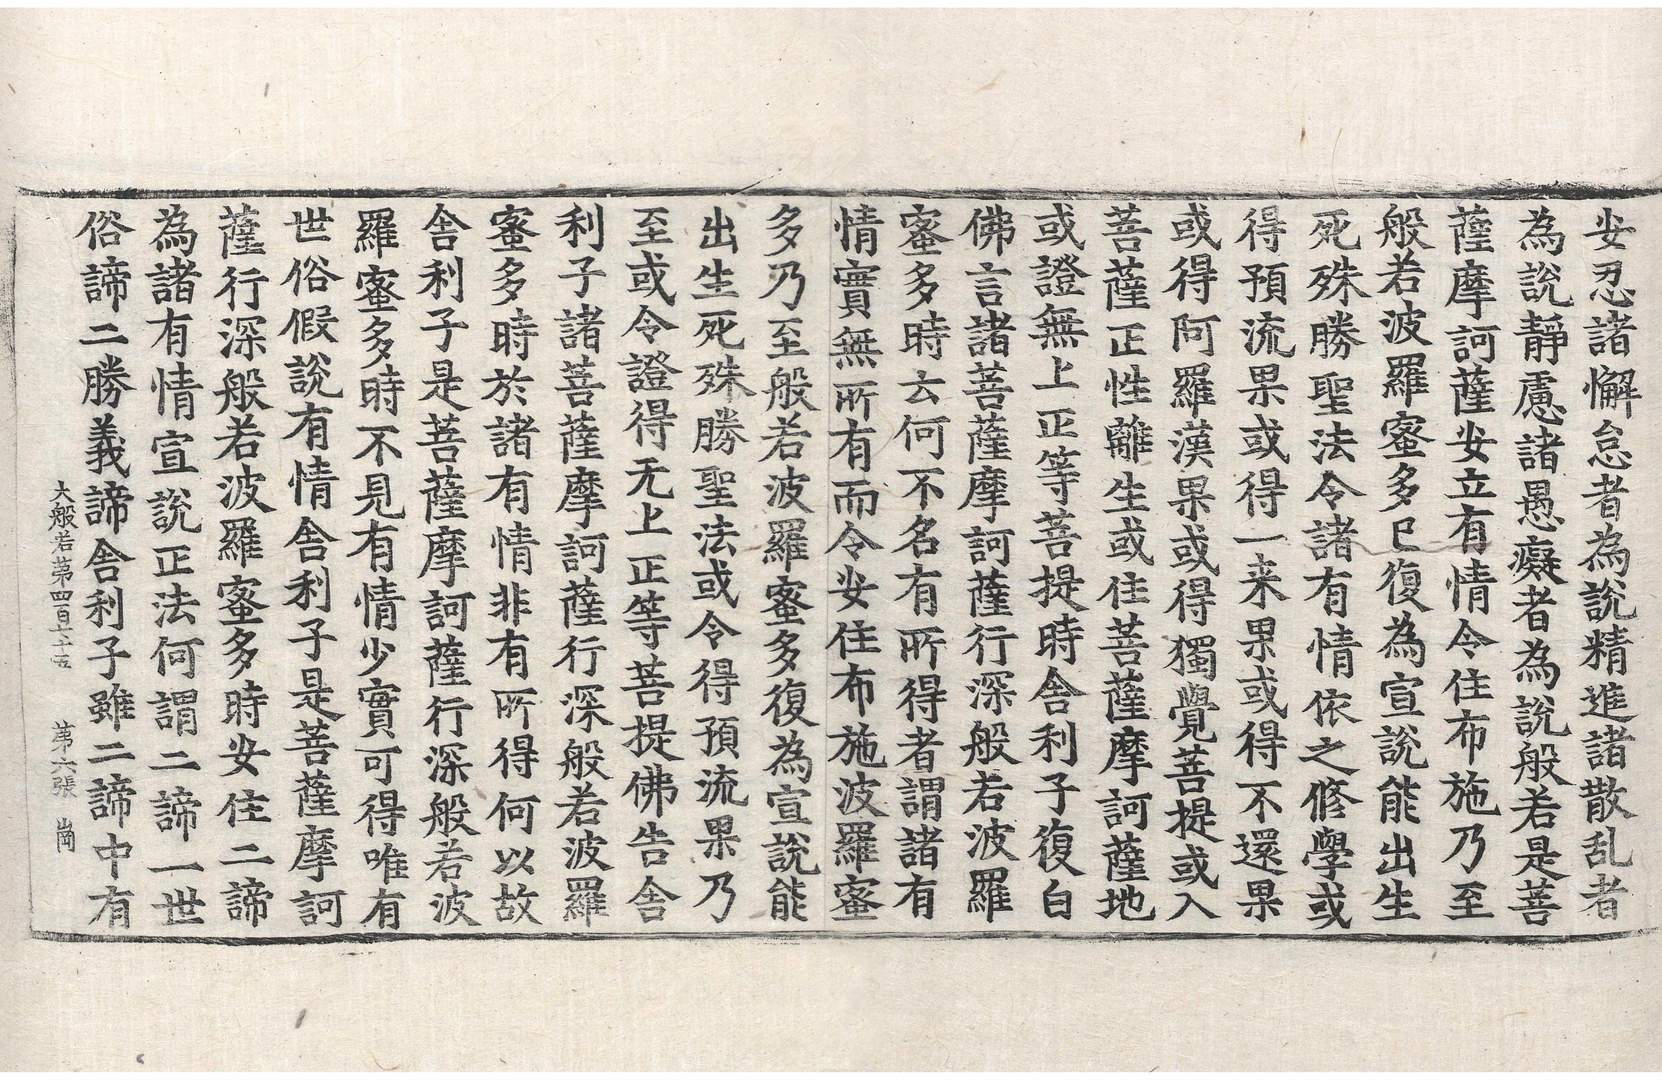 安忍諸懈怠者為說精進諸散乱者
為說靜慮諸愚癡者為說般若是菩
薩摩訶薩安立有情令住布施乃至
般若波羅蜜多已復為宣說能出生
死殊勝聖法令諸有情依之修學或
得預流果或得一来果或得不還果
或得阿羅漢果或得獨覺菩提或入
菩薩正性離生或住菩薩摩訶薩地
或證無上正等菩提時舍利子復白
佛言諸菩薩摩訶薩行深般若波羅
蜜多時云何不名有所得者謂諸有
情實無所有而令安住布施波羅蜜
多乃至般若波羅蜜多復為宣說能
出生死殊勝聖法或令得預流果乃
至或令證得无上正等菩提佛告舍
利子諸菩薩摩訶薩行深般若波羅
蜜多時於諸有情非有所得何以故
舍利子是菩薩摩訶薩行深般若波
羅蜜多時不見有情少實可得唯有
世俗假說有情舍利子是菩薩摩訶
薩行深般若波羅蜜多時安住二諦
為諸有情宣說正法何謂二諦一世
俗諦二勝義諦舍利子雖二諦中有
大般若第四百七十五　第六張　崗